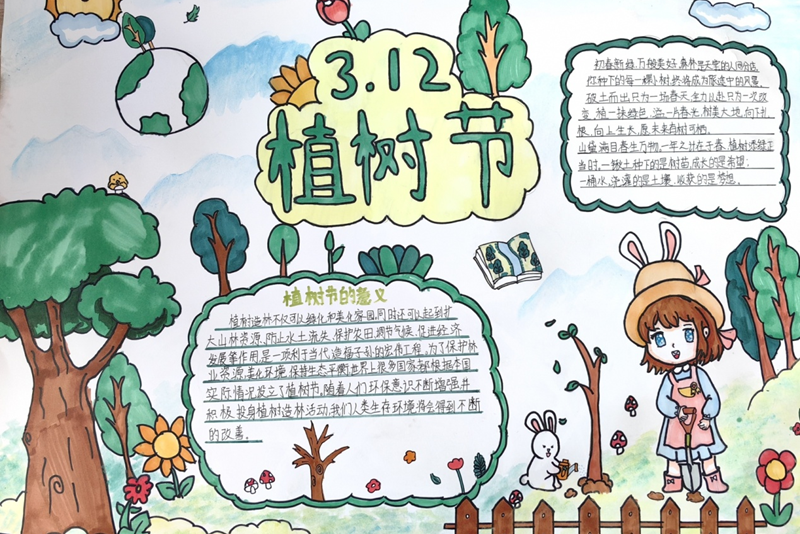 3.12
植树节
初春新绿,万般美好,森林是天堂的人间分店
你种下的每一棵小树,终将成为旅途中的风景,
破土而出只为一场春天,全力以赴只为一次改
变,植一抹绿色,造一片春光,树美大地,向下扎
根,向上生长,原来未有树可栖,
山篮满目春生万物,一年之计在于春,植树添绿正
当时,一锹土种下的是树苗,成长的是希望;
一桶水,浇灌的是土壤,收获的是梦想。
植树节的意义
植树造林不仅可以绿化和美化家园,同时还可以起到扩
大山林资源、防止水土流失、保护农田、调节气候、促进经济
发展等作用,是一项利于当代、造福子孙的宏伟工程,为了保护林
业资源,美化环境,保持生态平衡,世界上很多国家都根据本国
实际情况设立了植树节,随着人们环保意识不断增强,并
积极投身植树造林活动,我们人类生存环境将会得到不断
的改善。